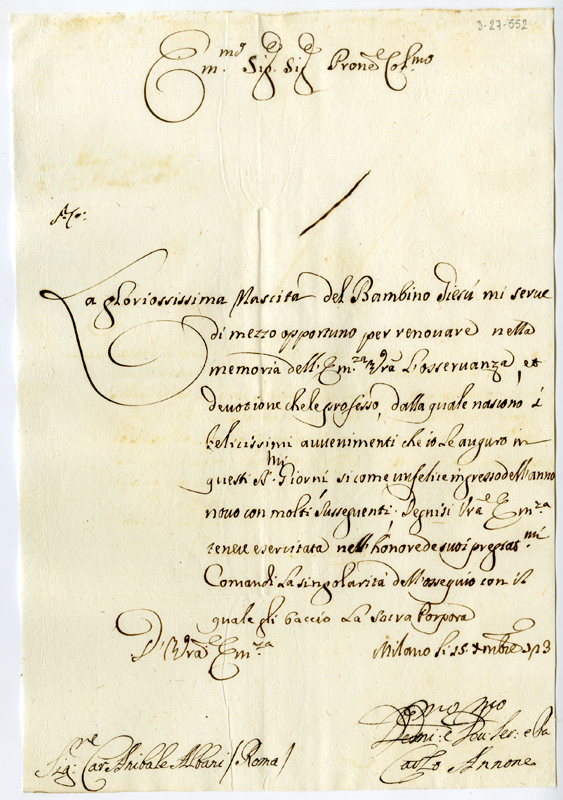 3-27-552
Em.mo Sig.e Sig.e Prone Col.mo
La gloriosissima Nascita del Bambino Giesù mi serve
di mezzo opportuno per renovare nella
memoria dell'Em.za Vra L'osservanza, et
devotione che le professo, dalla quale nascono i
felicissimi avvenimenti che io Le auguro in
questi S.mi Giorni si come un felice ingresso dell'anno
novo con molti susseguenti. Degnisi Vra Em.za
tener esercitata nell'honore de suoi pregiat.mi
Comandi La singolarità dell'ossequio con il
quale gli baccio La Sacra Porpora
D. Vra Em.za
Milano li 15 Xmbre 1713
Sig.re Car Anibale Albani (Roma)
Carlo Annone